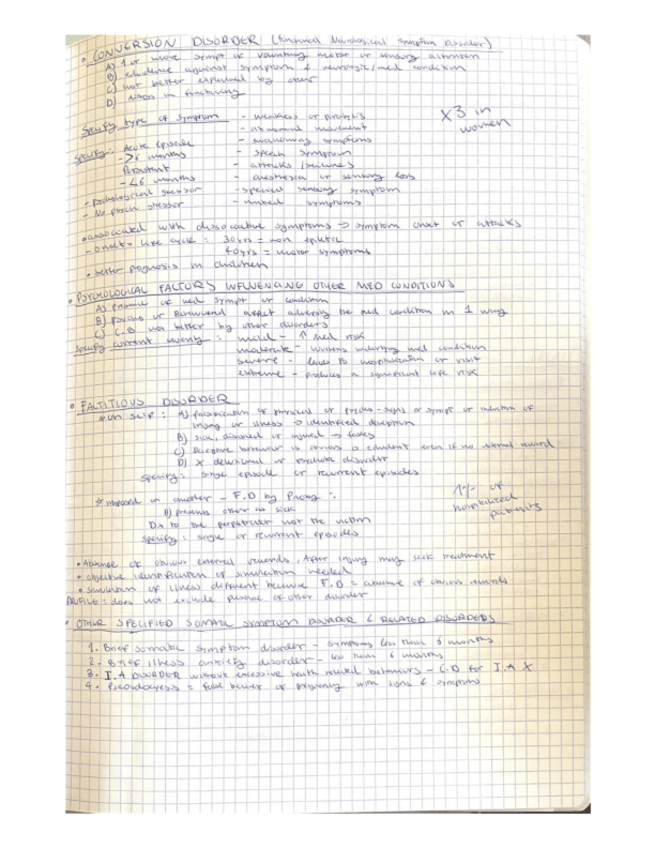 • CONVERSION DISORDER (Functional Neurological Symptom Disorder)
A) 1 or more sympt of voluntary motor or sensory alteration
B) evidence against symptom & neurologic/med condition
C) not better explained by other
D) distress in functioning
Specify type of symptom - weakness or paralysis
- abnormal movement
- swallowing symptoms
- speech symptom
- attacks /seizures
- anesthesia or sensory loss
- special sensory symptom
- mixed symptoms
X3 in
women
Specify: Acute episode
->6 months
Persistent
-<6 months
- psychological stressor
- No psych stressor
• associated with dissociative symptoms → symptom onset or attacks
- onset life cycle : 30yrs = non epileptic
40yrs = motor symptoms
• better prognosis in children
• PSYCHOLOGICAL FACTORS INFLUENCING OTHER MED CONDITIONS
A) presence of med sympt or condition
B) psycho or Behavioural affect adversly the med condition in 1 way
C) C.B not better by other disorders
Specify current severity : mild - ↑ med risk
moderate - worsens underlying med condition
severe - leads to hospitalization or visit
extreme - produces a significant life risk
• FACTITIOUS DISORDER
*on self : A) falsification of physical or psycho-signs or sympt or induction of
injury or illness → identified deception
B) sick, impaired or injured → fakes
C) Deceptive behaviour is obvious & evident even if no external reward
D) X delusional or psychotic disorder
specify: single episode or recurrent episodes
* imposed on another - F.D by Proxy :
B) presents other as sick
Dx to the perpetrator not the victim
specify : single or recurrent episodes
1% of
hospitalized
patients
• Absence of obvious external rewards. After injury may seek treatment
• objective identification of simulation needed
• simulation of illness different because F.D = absence of obvious rewards
: does not exclude presence of other disorder
• OTHER SPECIFIED SOMATIC SYMPTOM DISORDER & RELATED DISORDERS
1. Brief somatic symptom disorder - symptoms less than 6 months
2. Brief illness anxiety disorder - less than 6 months
3. I.A DISORDER without excessive health related behaviors - C.D for I.A X
4. Pseudocyesis = false believe of pregnancy with signs & symptoms